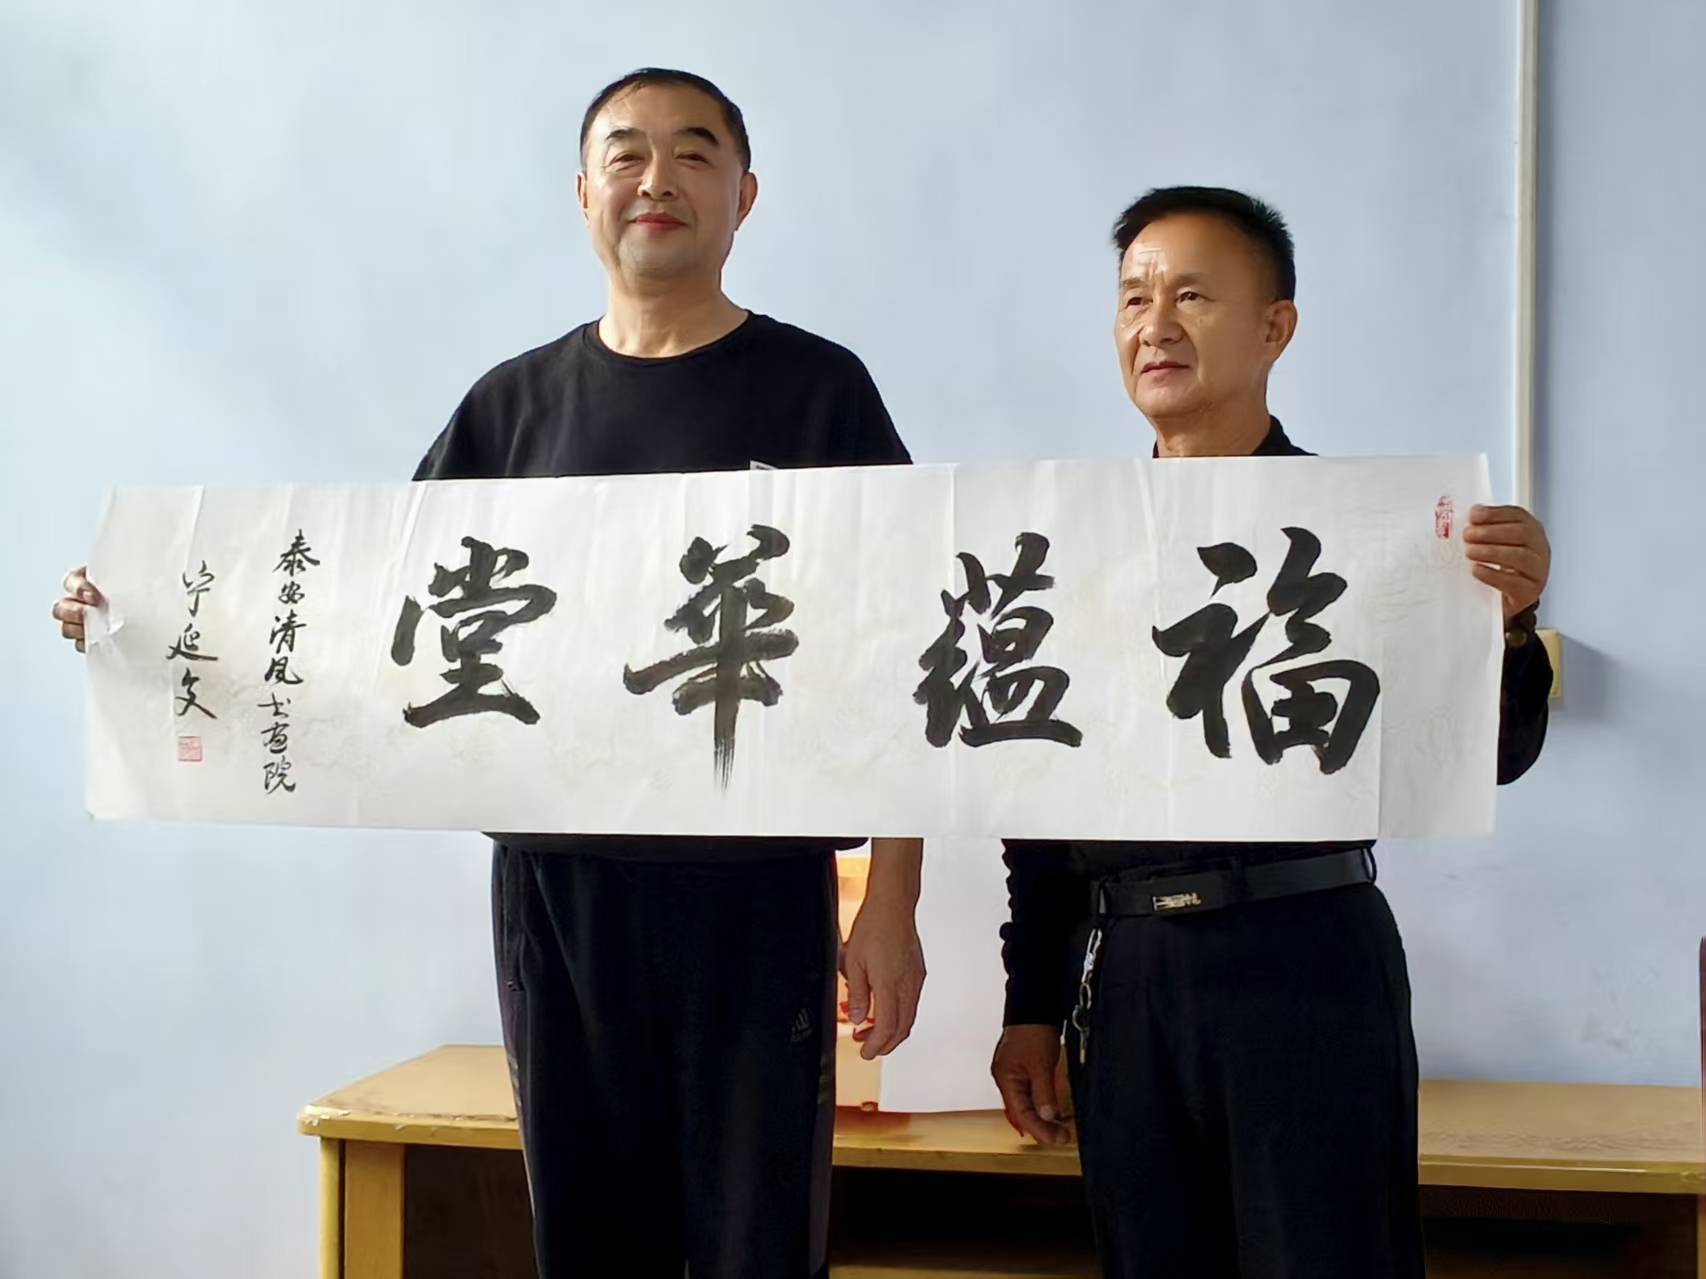 福蕴華堂
泰安清风书画院
宁延文